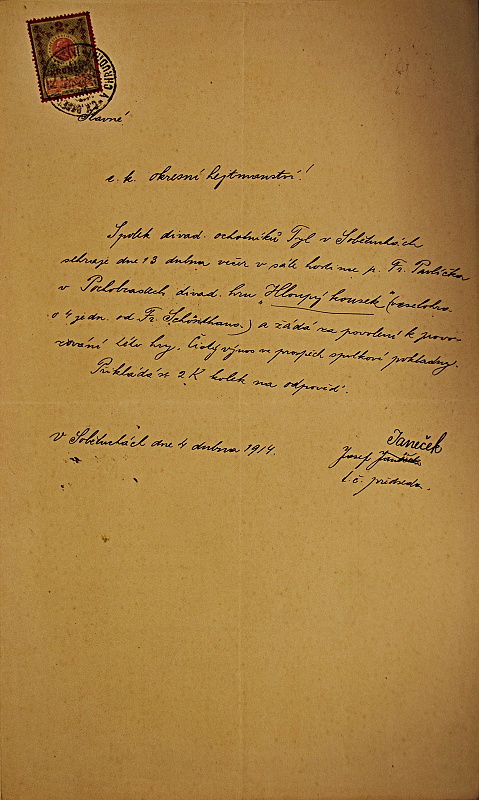 Slavné
c. k. okresní hejtmanství!
Spolek divad. ochotníků Tyl v Sobětuchách
sehraje dne 13 dubna večer v sále hostince p. Fr. Pavlíčka
v Pochobradech divad. hru "Hloupý kousek" (veselohra
o 4 jedn. od Fr. Schönthana.) a žádá za povolení k provo-
zování této hry. Čistý výnos ve prospěch spolkové pokladny.
Přikládá se 2 K kolek na odpověď.
V Sobětuchách dne 4 dubna 1914.
Janeček
Josef
t. č. předseda.